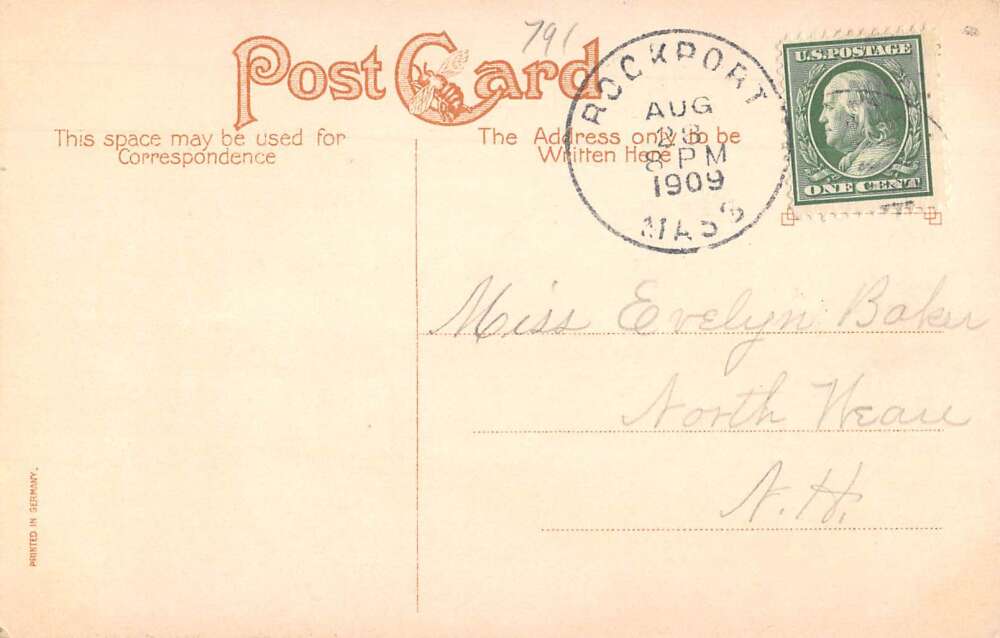 791
Post Card
This space may be used for
Correspondence
The Address only to be
Written Here
ROCKPORT
AUG
23
8 PM
1909
MASS
U.S. POSTAGE
ONE CENT
Miss Evelyn Baker
North Weare
N.H.
PRINTED IN GERMANY.